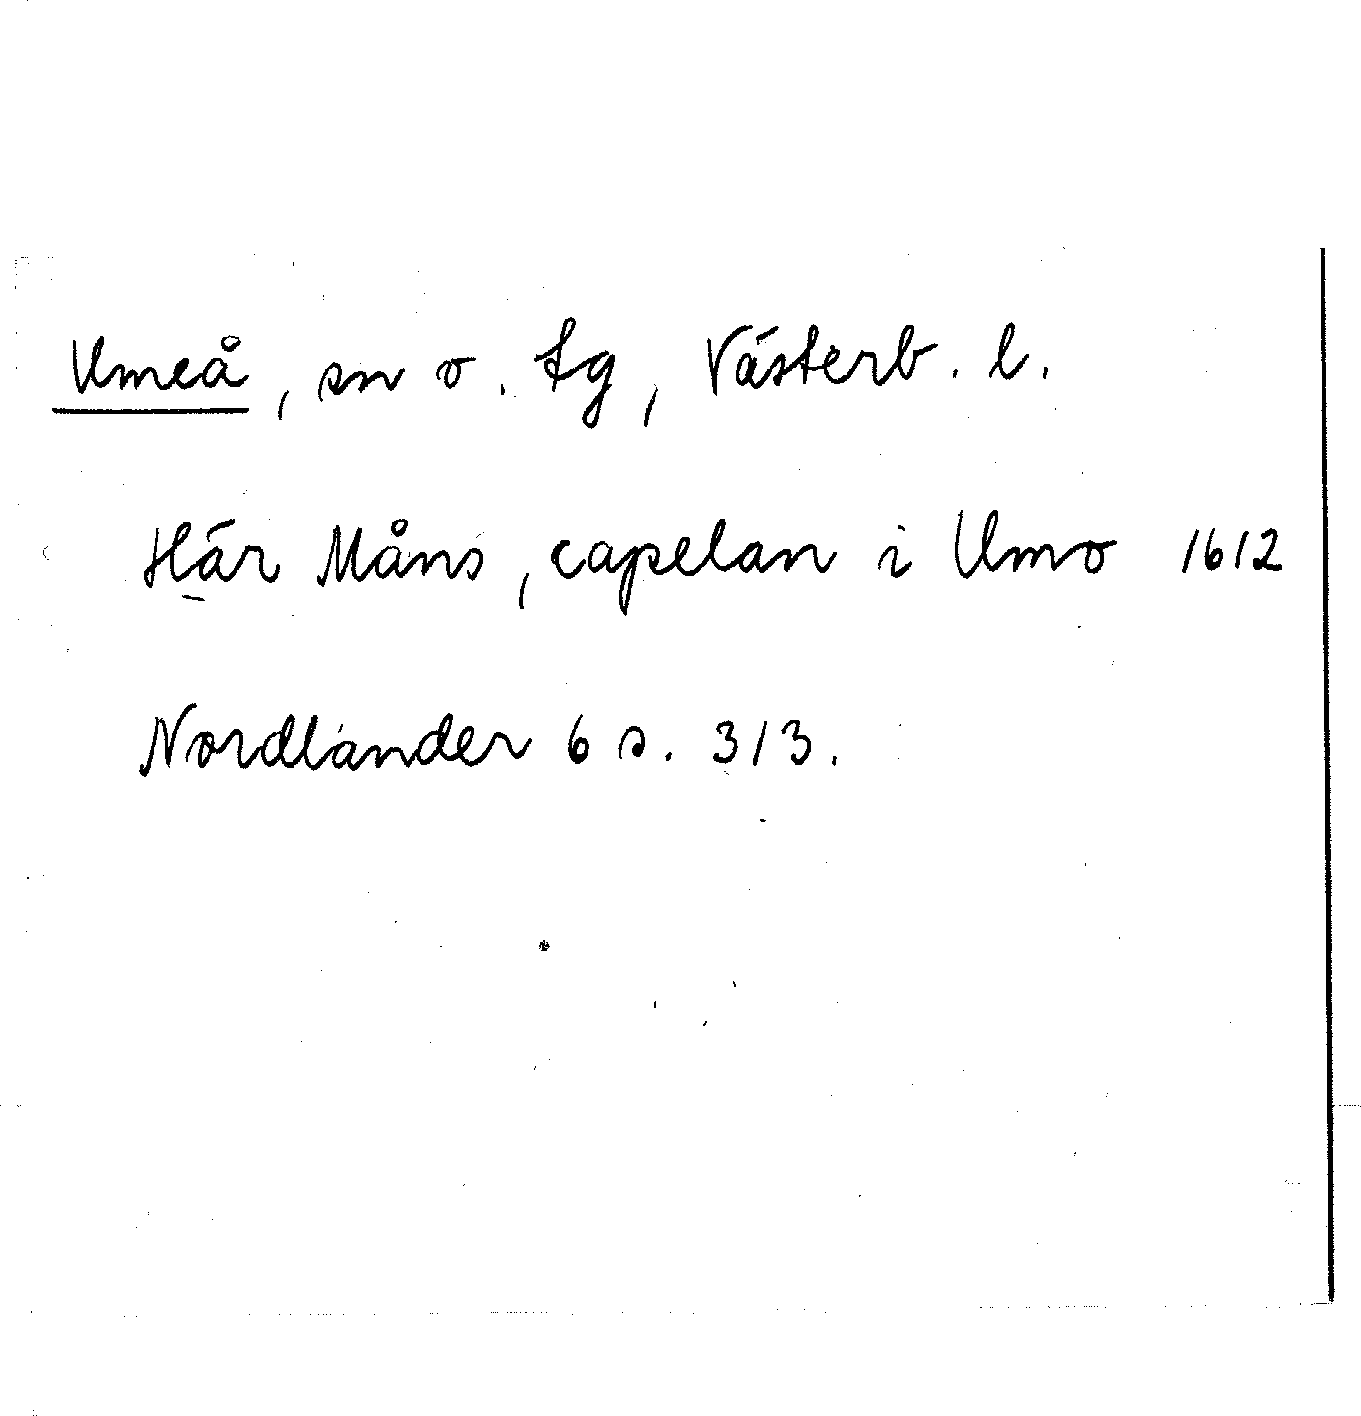 Umeå, sn o. tg, Västerb. l.
Här Måns, capelan i Umo 1612
Nordlander 6 s. 313.